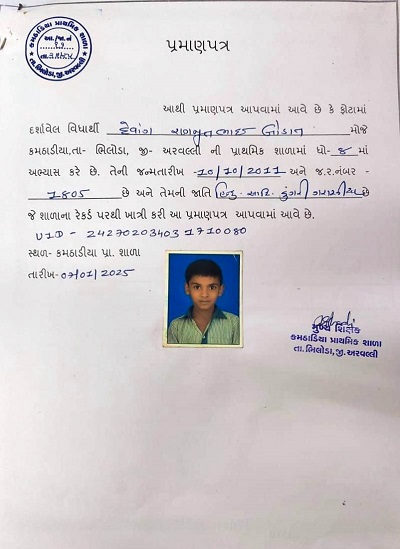 કમઠાડિયા પ્રાથમિક શાળા
તા.ભિલોડા,જી.અરવલ્લી
પ્રમાણપત્ર
આથી પ્રમાણપત્ર આપવામાં આવે છે કે ફોટામાં
દર્શાવેલ વિધાર્થી દેવાંગ મોજે
કમઠાડીયા,તા- ભિલોડા, જી- અરવલ્લી ની પ્રાથમિક શાળામાં ધો- ૪ માં
અભ્યાસ કરે છે. તેની જન્મતારીખ -10/10/2011 અને જ.ર.નંબર -
1805 છે અને તેમની જાતિ હિન્દુ આદિ. ડુંગરી ગરાસીયા છે
જે શાળાના રેકર્ડ પરથી ખાત્રી કરી આ પ્રમાણપત્ર આપવામાં આવે છે.
UID - 24270203403 1710080
સ્થળ- કમઠાડીયા પ્રા. શાળા
તારીખ- 07/01/2025
મુખ્ય શિક્ષક
કમઠાડિયા પ્રાથમિક શાળા
તા.ભિલોડા,જી.અરવલ્લી